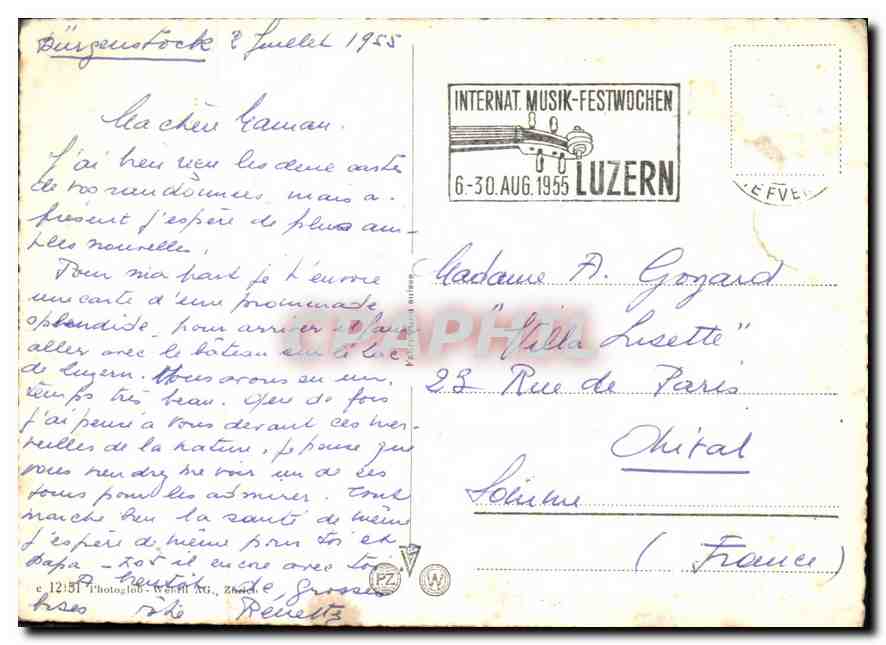 Bürgenstock 2 Juillet 1955
Ma chère Maman.
J'ai bien reçu les deux cartes
de vos randonnées, mais à
présent j'espère de plus am-
ples nouvelles.
Pour ma part je t'envoie
une carte d'une promenade
splendide, pour arriver il faut
aller avec le bâteau sur le lac
de Luzern. Nous avons eu un
temps très beau. Que de fois
j'ai pensé à vous devant ces mer-
veilles de la nature, je pense que
vous viendrez me voir un de ces
jours pour les admirer. Tout
marche bien la santé de même
j'espère de même pour toi et
Papa - est il encore avec toi
A bientôt de grosses
bises Renette
c 12151 Photoglob-Wehrli AG., Zürich
PZ W
INTERNAT. MUSIK-FESTWOCHEN
6.-30. AUG. 1955 LUZERN
EFVE
Madame A. Gozard
"Villa Lisette"
23 Rue de Paris
Somme
(France)
CPAPHIL